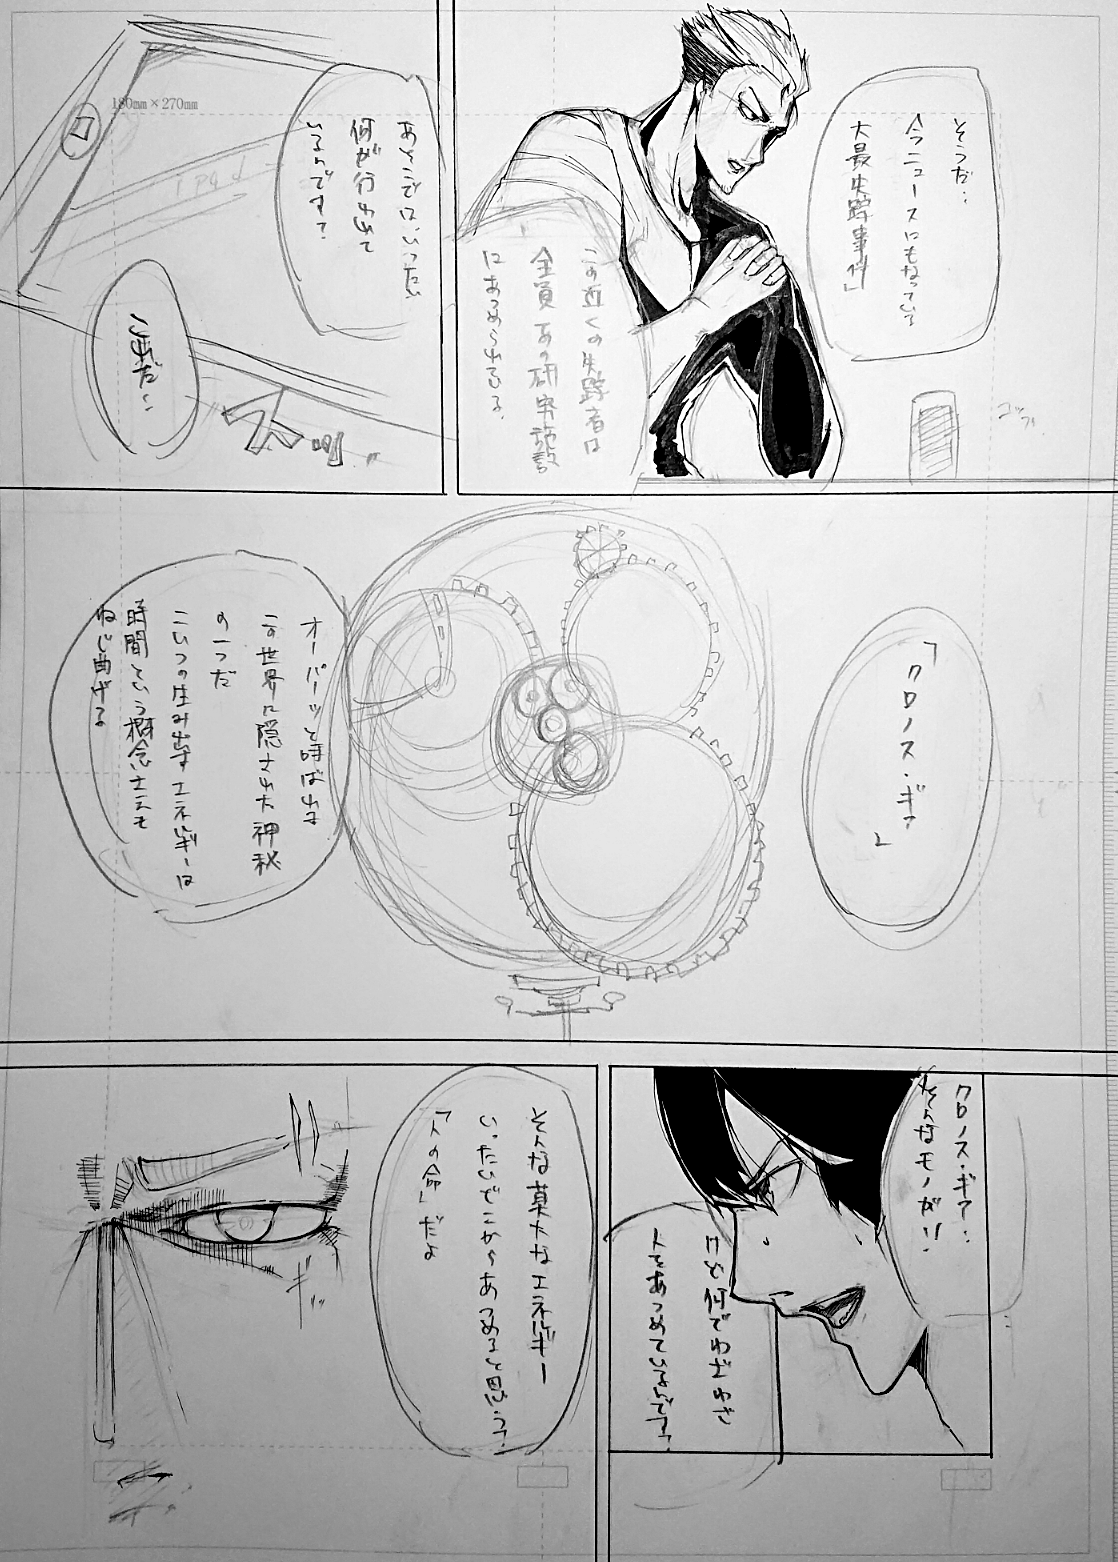 そうだ…
今ニュースにもなっている
大量失踪事件」
コッ
この近くの失踪者は
全員あの研究施設
にあつめられている。
あそこではいったい
何が行われて
いるんです?
180mm×270mm
ipad
これだ…
スッ
「クロノス・ギア
」
オーパーツと呼ばれる
この世界に隠された神秘
の一つだ
こいつの生み出すエネルギーは
時間という概念さえも
ねじ曲げる
クロノス・ギア…
そんなモノが…
けど何でわざわざ
人をあつめているんです?
そんな莫大なエネルギー
いったいどこからあつめると思う?
「人の命」だよ
ギッ